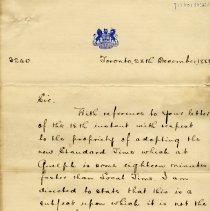 3240 Toronto, 28th December, 188
Sir.
With reference to your letter
of the 18th instant with respect
to the propriety of adopting the
new Standard Time which at
Guelph is some eighteen minutes
faster than Local Time. I am
directed to state that this is a
subject upon which it is not the